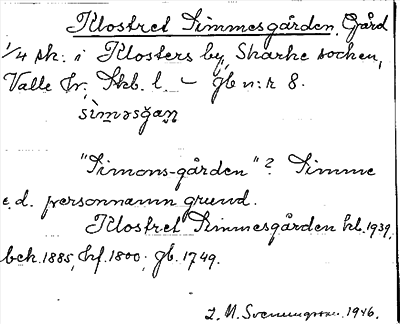 Klostret Simmesgården. Gård
1/4 sk. i Klosters by, Skarke socken,
Valle hr. Skb. l. — Jb n:r 8.
sìməsğaɳ
"Simons-gården"? Simme
e.d. personnamn grund.
Klostret Simmesgården hl. 1939,
bek. 1885, hf. 1800; Jb. 1749.
1946.